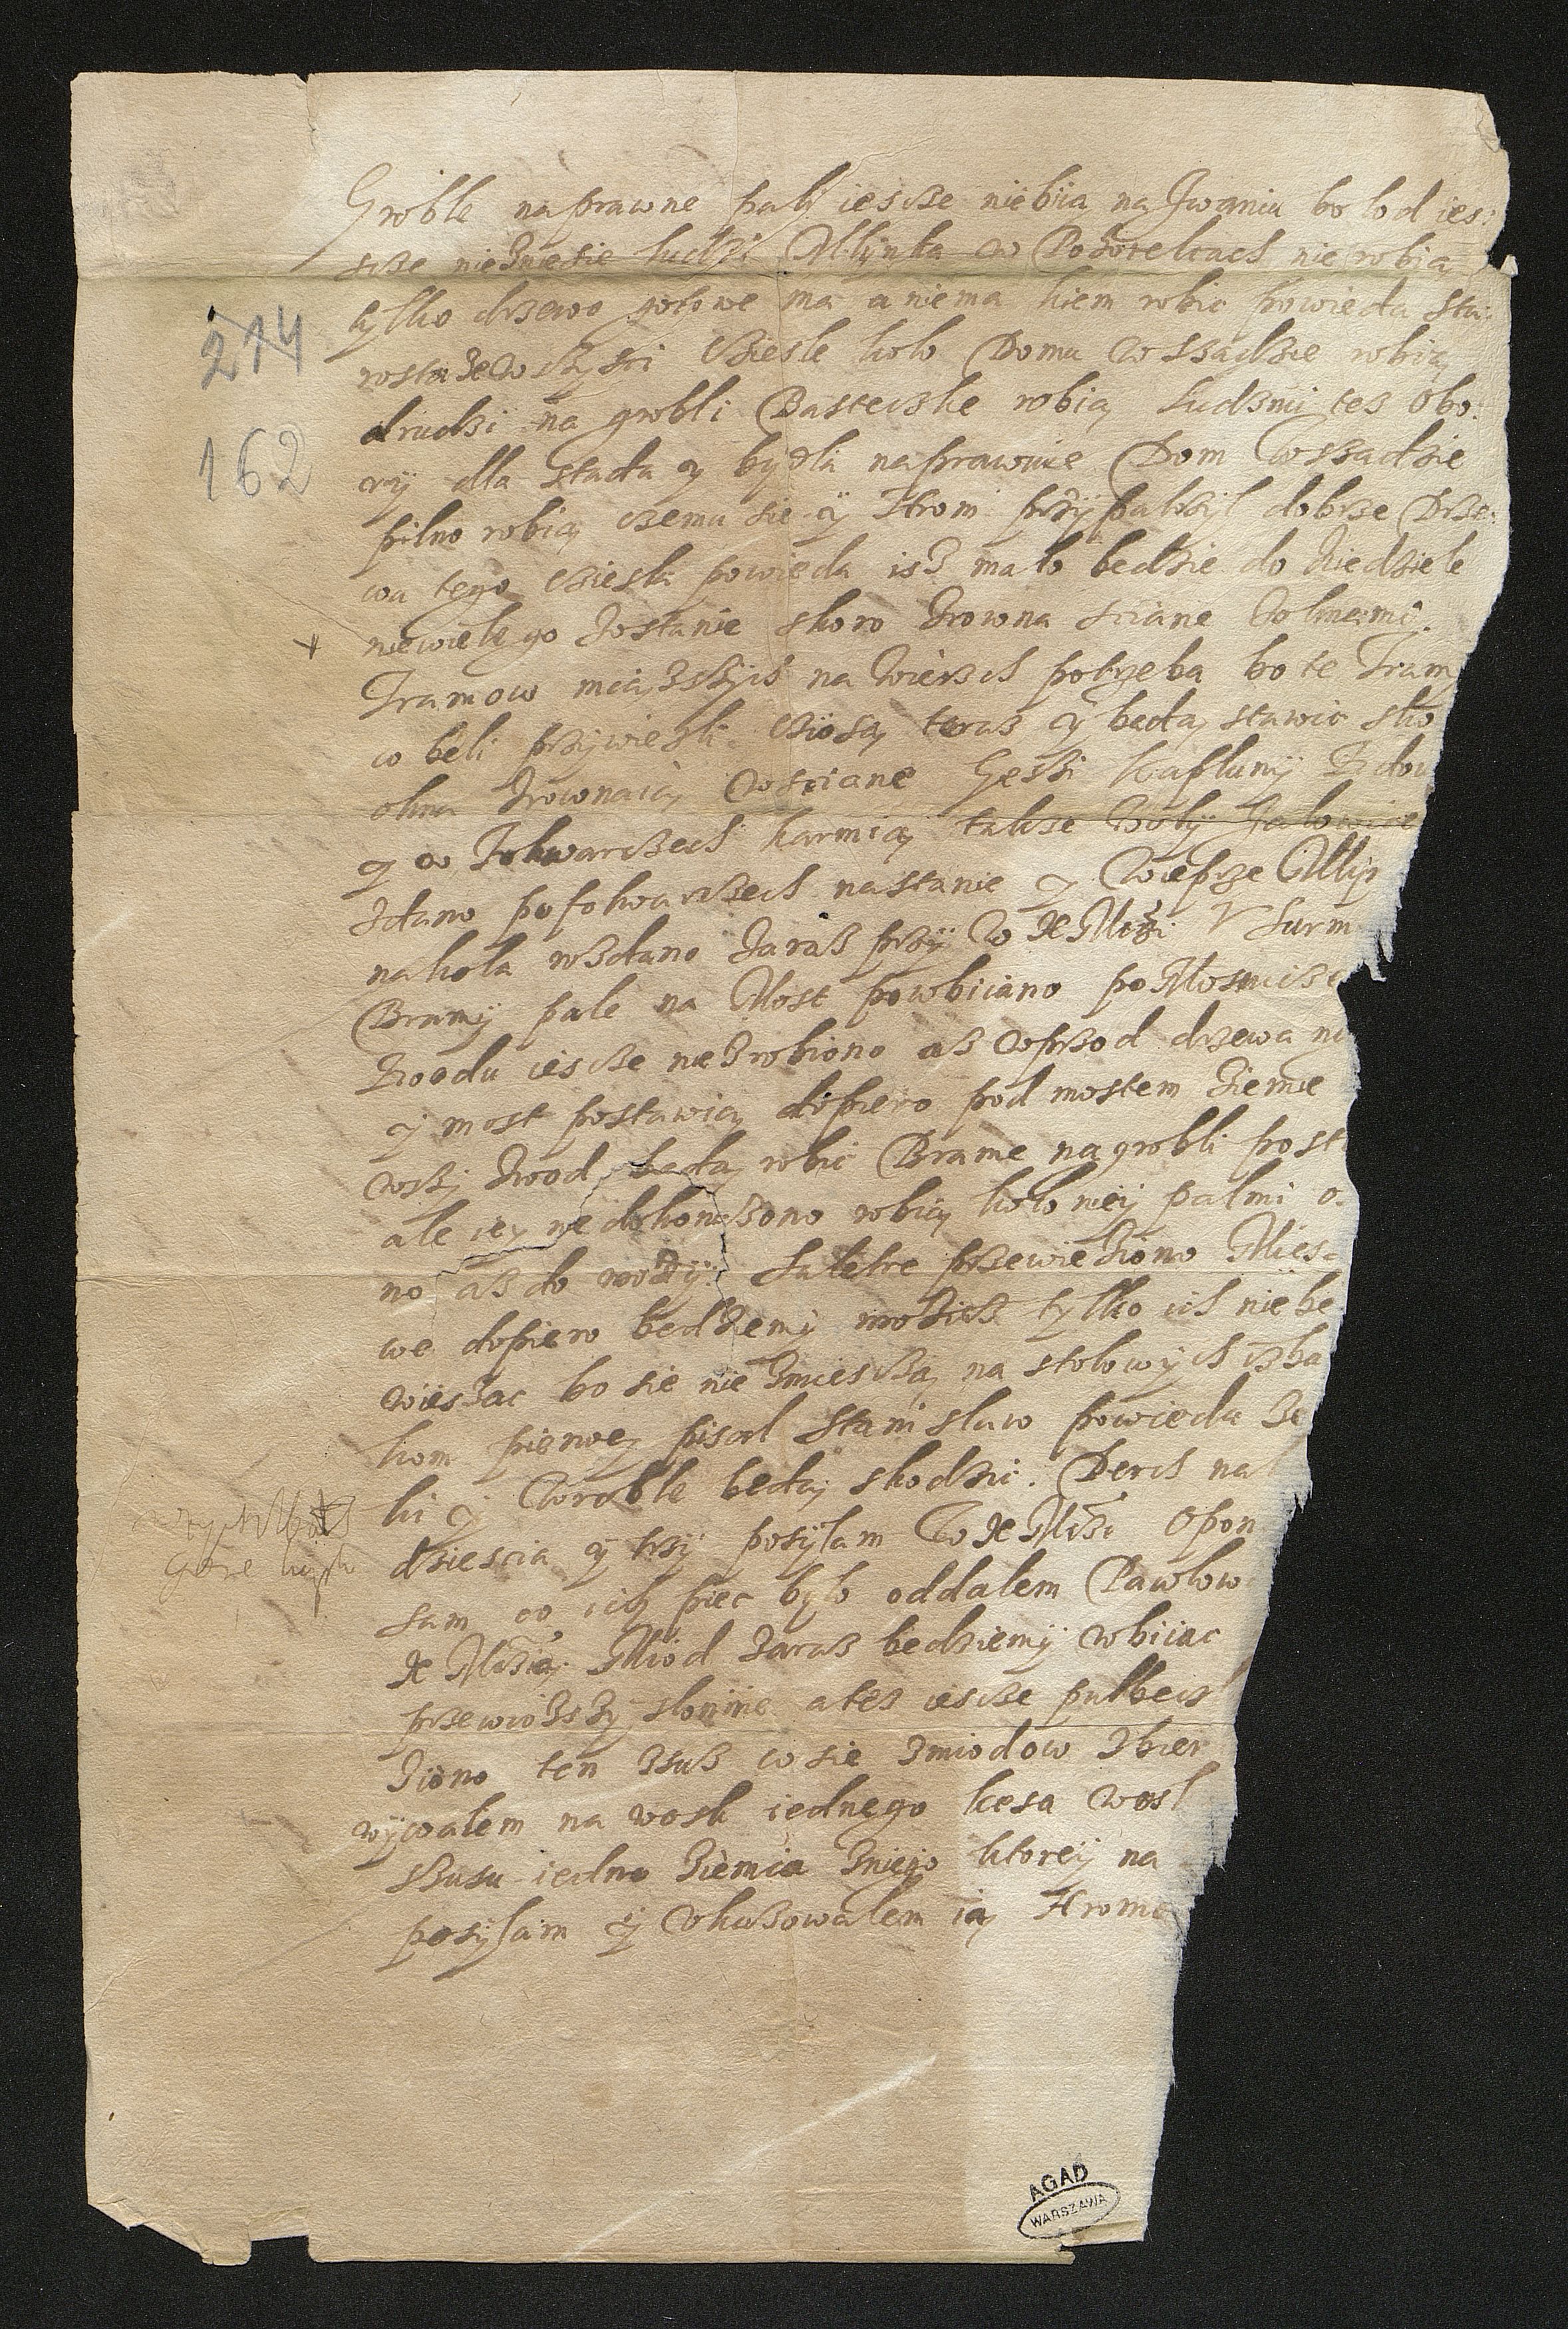 Groble naprawne pali iescze niebiia na Jwaniu bo lod ies:
scze nieZniesie ludzi Mlynka w Pozorelcach nie robią
tylko drzewo gotowe ma a niema kiem robic powieda sta:
rosta ze wszysci Ciesle kolo Domu w Ssadzie robią
drudzi na grobli Basteczke robią ludzmi tes Obo:
ry dla stada y bydla naprawuie Dom w Ssadzie
pilno robią czemu sie y Hrom przypatrzyl dobrze Drze:
wa tego Ciesla powieda isz malo bedzie do Niedziele
niewielego Zostanie skoro Zrowna sciane Zolnami.
Tramow miąsszych na Wierzch potrzeba bo te Tram
co beli przywiezli Ciosą teras y bedą stawic sko
okna Zrownaią w sciane Gęsi Kapluny
y w Folwarczech karmią takze Woly Jalowice
Zdano po folwarczech nastanie y Wieprze Mlyn
na kola wzdano Zaras przy W Xe Mczi V Surm
Bramy pale na Most powbiiano po Mosnicze
Zwodu iescze nie Zrobiono asz wprzod drzewa na
y most postawią dopiero pod mostem Ziemie
wszy Zwod bedą robic Brame na grobli post
ale iey nie dokonczono robią kolo niey palmi o
no asz do wody. Saletre przewieziono Mies
we dopiero bedziemy wozicz tylko ich nie be
wieszac bo sie nie Zmieszczą na stolowych izba
kom pierwey pisal Stanislaw powieda Ze
ki y Wroble bedą skodzic. Derch na
dziescia y trzy posylam W Xe Mczi Opon
sam co ich piec bylo oddalem Pawlow
Xe Mczią. Miod Zaras bedziemy wbiiac
przewiozszy slonine a tes iescze pulbecz
Ziono ten Zsusz co sie Zmiodow Zbier
wywalem na wosk iednego kesa wosk
Zsusu iedno Ziemia Zniego ktorey na
posylam y Vkazowalem ią Hrom
214
162
Gore
AGAD
WARSZAWA